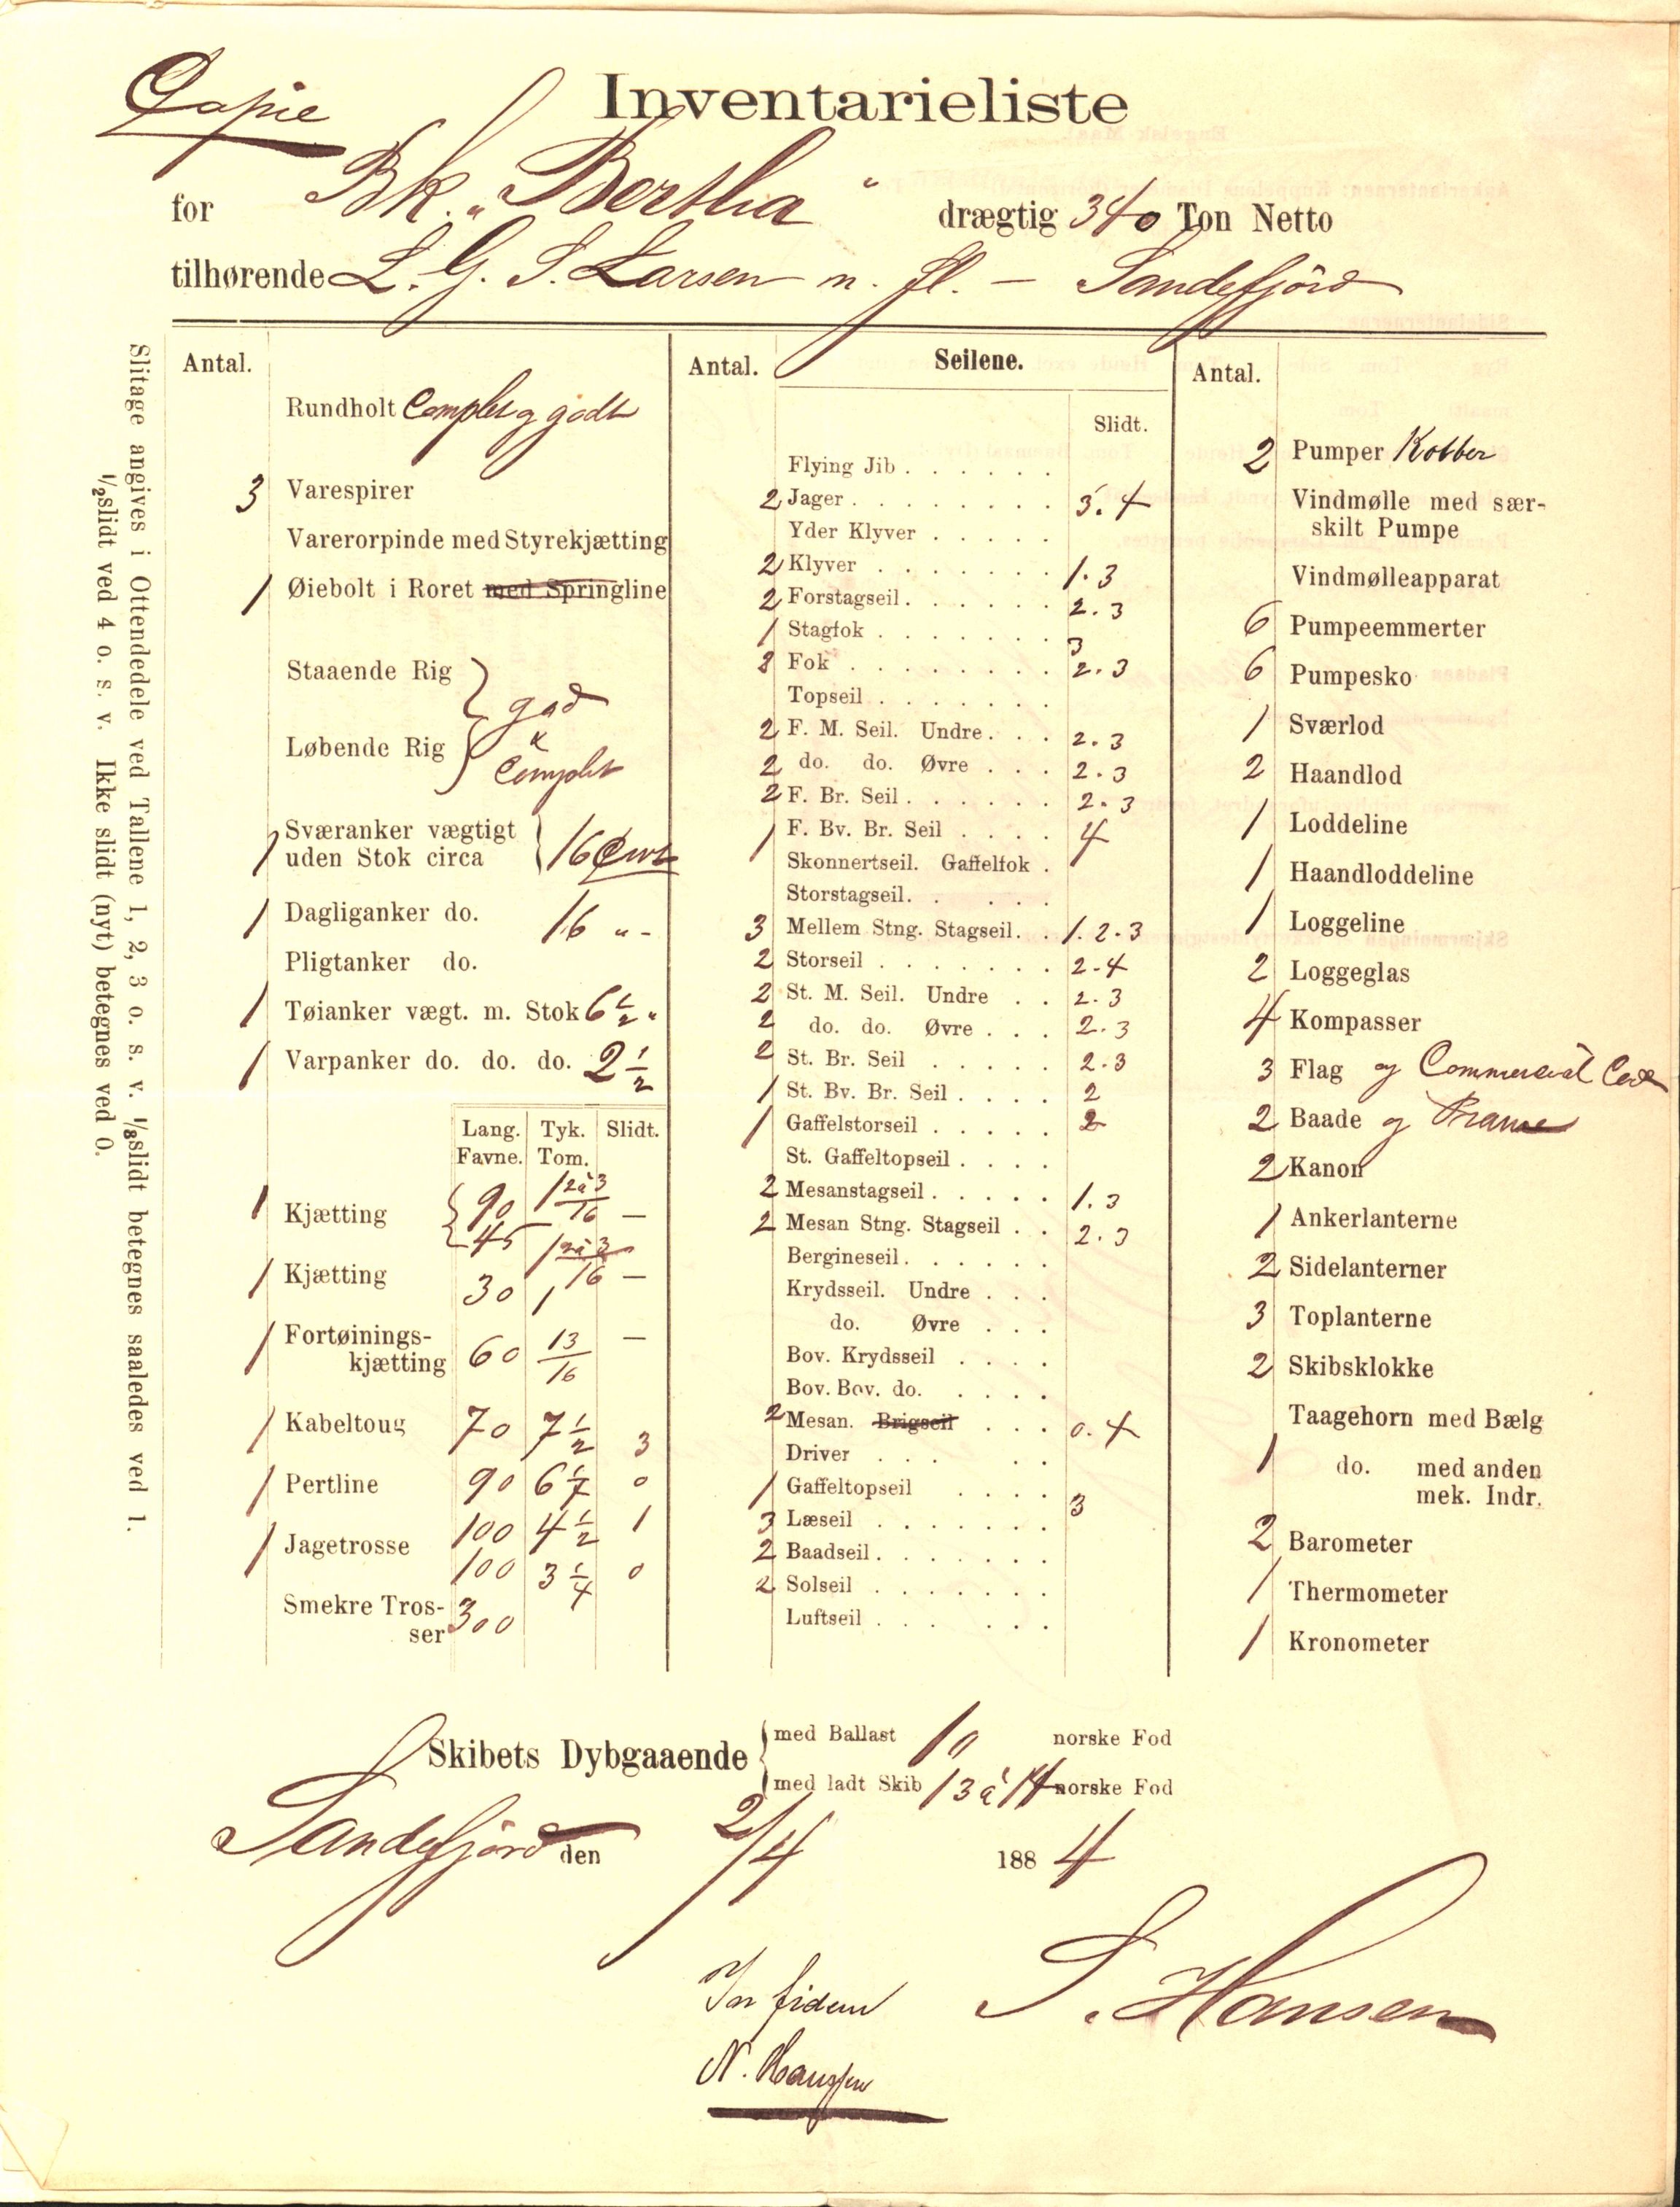 Copie
Inventarieliste
for Bk. „Bertha" drægtig 340 Ton Netto
tilhørende L. G. S. Larsen m. fl. — Sandefjörd
Slitage angives i Ottendedele ved Tallene 1, 2, 3 o. s. v. 1/8 slidt betegnes saaledes ved 1.
1/2 slidt ved 4 o. s. v. Ikke slidt (nyt) betegnes ved 0.
Antal.
Rundholt Complet og godt
3 Varespirer
Varerorpinde med Styrekjætting
1 Øiebolt i Roret med Springline
Staaende Rig } god
&
Løbende Rig } Complet
1 Sværanker vægtigt
uden Stok circa } 16 Cwt
1 Dagliganker do. 16 „ -
Pligtanker do.
1 Tøianker vægt. m. Stok 6 1/2 „
1 Varpanker do. do. do. 2 1/2
Lang. Tyk. Slidt.
Favne. Tom.
1 Kjætting { 90 1 2à3/16 —
45 1 2à3/16
1 Kjætting 30 1 —
1 Fortøinings-
kjætting 60 13/16 —
1 Kabeltoug 70 7 1/2 3
1 Pertline 90 6 0
1 Jagetrosse 100 4 1/2 1
100 3 1/4 0
Smekre Tros-
ser 300
Antal. Seilene.
Slidt.
Flying Jib . . . . . .
2 Jager . . . . . . . . 3. 4
Yder Klyver . . . . .
2 Klyver . . . . . . . 1. 3
2 Forstagseil . . . . . . 2. 3
1 Stagfok . . . . . . . 3
2 Fok . . . . . . . . 2. 3
Topseil . . . . . . .
2 F. M. Seil. Undre . . . 2. 3
2 do. do. Øvre . . . 2. 3
2 F. Br. Seil . . . . . . 2. 3
1 F. Bv. Br. Seil . . . . 4
Skonnertseil. Gaffelfok .
Storstagseil. . . . .
3 Mellem Stng. Stagseil. . 1. 2. 3
2 Storseil . . . . . . . 2-4
2 St. M. Seil. Undre . . 2. 3
2 do. do. Øvre . . . 2. 3
2 St. Br. Seil . . . . . 2.3
1 St. Bv. Br. Seil . . . . 2
1 Gaffelstorseil . . . . . 2
St. Gaffeltopseil . . . .
2 Mesanstagseil . . . . . 1. 3
2 Mesan Stng. Stagseil . . 2. 3
Bergineseil . . . . . .
Krydsseil. Undre . . .
do. Øvre . . .
Bov. Krydsseil . . . .
Bov. Bov. do. . . . .
2 Mesan. Brigseil . . . 0. 4
Driver . . . . .
1 Gaffeltopseil . . . . 3
3 Læseil . . . . . . .
2 Baadseil . . . . . . .
2 Solseil . . . . . . .
Luftseil . . . . . .
Antal.
2 Pumper Kobber
Vindmølle med sær-
skilt Pumpe
Vindmølleapparat
6 Pumpeemmerter
6 Pumpesko
1 Sværlod
2 Haandlod
1 Loddeline
1 Haandloddeline
1 Loggeline
2 Loggeglas
4 Kompasser
3 Flag og Commercial Code
2 Baade og Pram
2 Kanon
1 Ankerlanterne
2 Sidelanterner
3 Toplanterne
2 Skibsklokke
Taagehorn med Bælg
1 do. med anden
mek. Indr.
2 Barometer
1 Thermometer
1 Kronometer
Skibets Dybgaaende { med Ballast 10 norske Fod
med ladt Skib 13 à 14 norske Fod
Sandefjörd den 2/4 1884
In fidem S. Hansen
N. Hanssen